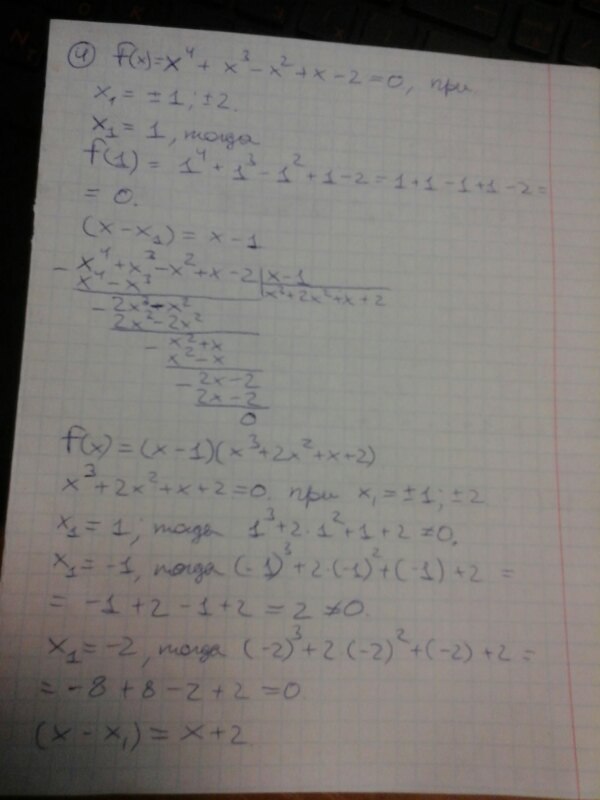 ④ f(x)=x⁴+x³-x²+x-2=0, при
x₁=±1; ±2.
x₁=1, тогда
f(1)=1⁴+1³-1²+1-2=1+1-1+1-2=
=0.
(x-x₁)=x-1
- x⁴+x³-x²+x-2 | x-1
x⁴-x³ | x³+2x²+x+2
- 2x³-x²
2x³-2x²
- x²+x
x²-x
- 2x-2
2x-2
0
f(x)=(x-1)(x³+2x²+x+2)
x³+2x²+x+2=0. при x₁=±1; ±2
x₁=1; тогда 1³+2·1²+1+2≠0.
x₁=-1, тогда (-1)³+2·(-1)²+(-1)+2 =
= -1+2-1+2=2≠0.
x₁=-2, тогда (-2)³+2(-2)²+(-2)+2=
=-8+8-2+2=0.
(x-x₁)=x+2